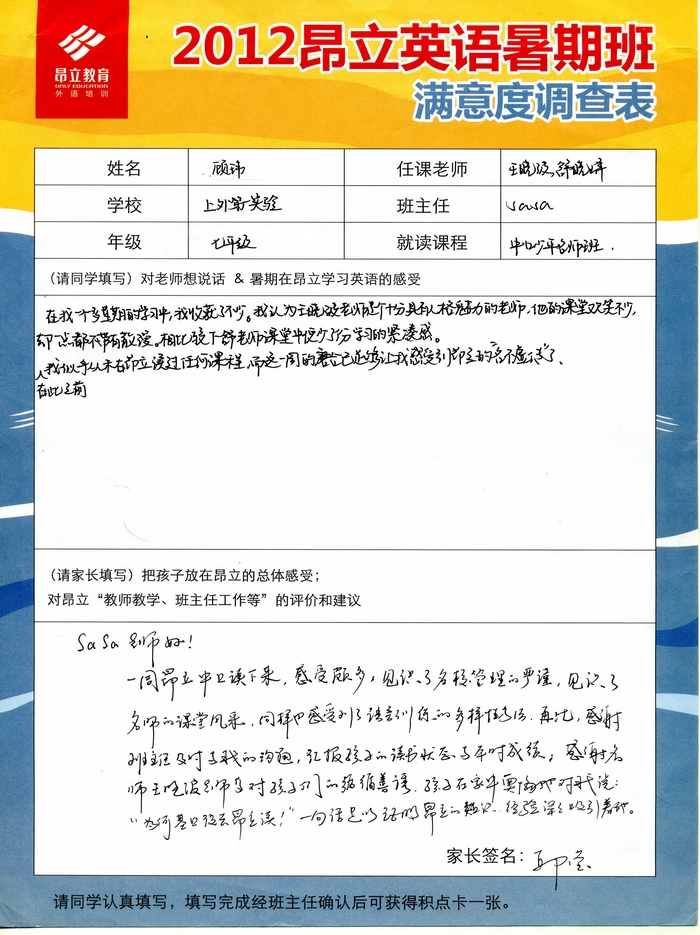 昂立教育
ONLY EDUCATION
外语培训
2012昂立英语暑期班
满意度调查表
姓名 顾玮 任课老师 王晓波、舒晓婷
学校 上外实验 班主任 sasa
年级 七年级 就读课程 中口少年名师班.
(请同学填写) 对老师想说话 & 暑期在昂立学习英语的感受
在我一个星期的学习中,我收获了不少。我认为王晓波老师是个十分具有人格魅力的老师,他的课堂欢笑不少,
却一点都不带有敷衍。相比较下舒老师课堂中便多了份学习的紧凑感。
我似乎从未在昂立读过任何课程,而这一周的已足够让我感受到昂立的名不虚传了、
在此之前
(请家长填写) 把孩子放在昂立的总体感受;
对昂立“教师教学、班主任工作等”的评价和建议
SaSa 老师好!
一周昂立中口读下来,感受颇多,见识了名校管理的严谨,见识了
名师的课堂风采,同样也感受到了语言训练的多样性. 再此,感谢
班主任及时与我的沟通,汇报孩子的读书状态与平时成绩;感谢名
师王晓波老师等对孩子们的循循善诱. 孩子在家中对我说:
“为何基口没去昂立读!”一句话足以证明昂立的 经验深深吸引着他。
家长签名:
请同学认真填写,填写完成经班主任确认后可获得积点卡一张。